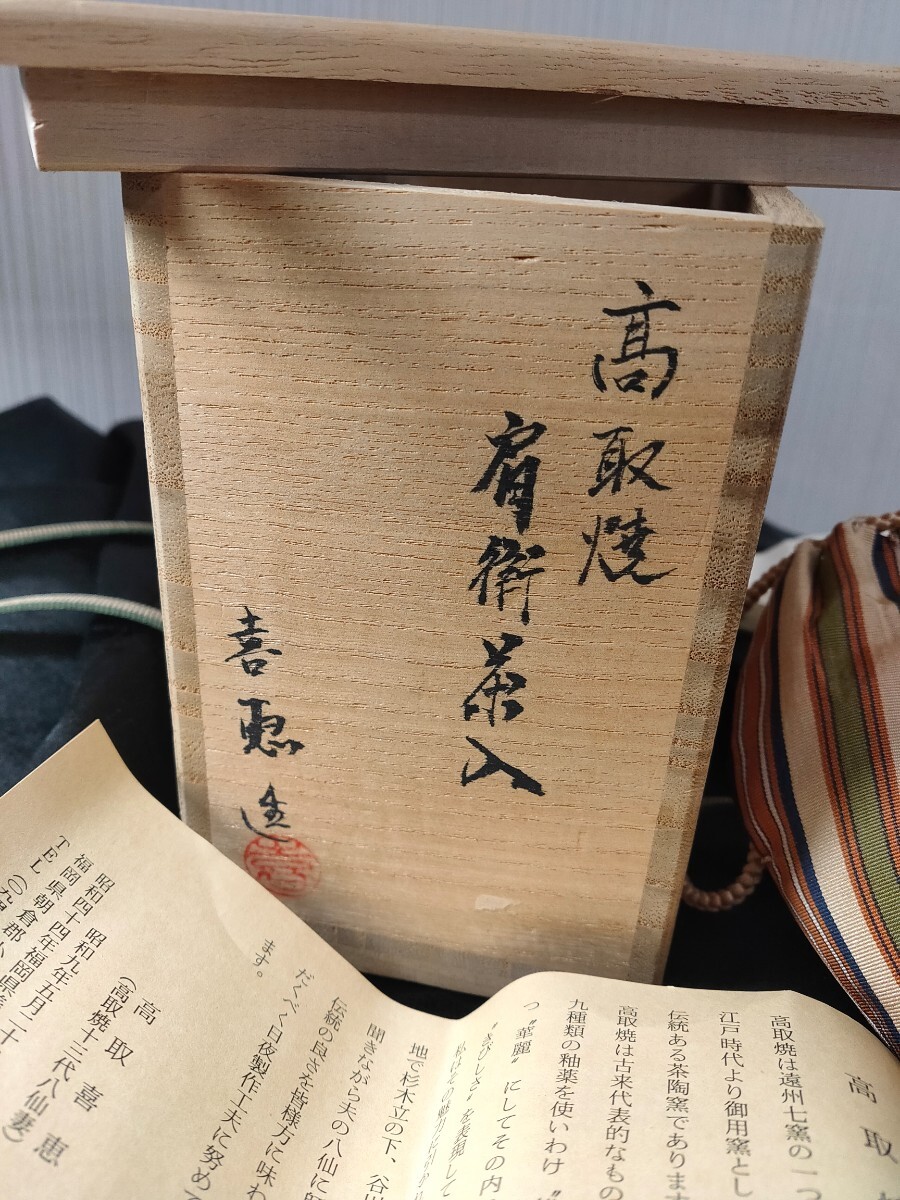 高取焼
肩衝茶入
喜恵造
高取
高取焼は遠州七窯の一つ
江戸時代より御用窯とし
伝統ある茶陶窯であります
高取焼は古来代表的なもの
九種類の釉薬を使いわけ
つ〝華麗〟にしてその内
〝きびしさ〟を表現して
私はその魅力に
地で杉木立の下、谷川
聞きながら夫の八仙に
伝統の良さを皆様方に味わ
だくべく日夜製作工夫に努めて
ます。
高取喜恵
(高取焼十三代八仙妻)
昭和九年五月二十
昭和四十四年福岡県
福岡県朝倉郡小
TEL(〇九四